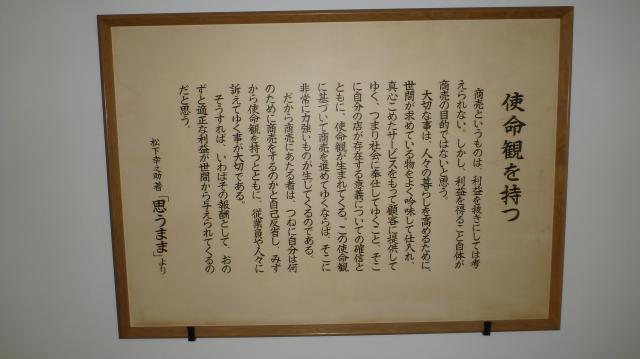 使命観を持つ
商売というものは、利益を抜きにしては考
えられない。しかし、利益を得ること自体が
商売の目的ではないと思う。
大切な事は、人々の暮らしを高めるために、
世間が求めている物をよく吟味して仕入れ、
真心こめたサービスをもって顧客に提供して
ゆく、つまり社会に奉仕してゆくこと、そこ
に自分の店が存在する意義についての確信と
ともに、使命観が生まれてくる。この使命観
に基づいて商売を進めてゆくならば、そこに
非常に力強いものが生じてくるのである。
だから商売にあたる者は、つねに自分は何
のために商売をするのかと自己反省し、みず
から使命観を持つとともに、従業員や人々に
訴えてゆく事が大切である。
そうすれば、いわばその報酬として、おの
ずと適正な利益が世間から与えられてくるの
だと思う。
松下幸之助 著 「思うまま」より